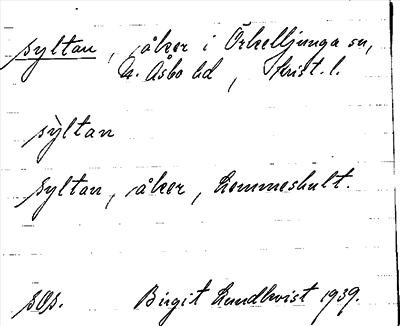 syltan, åker i Örkelljunga sn,
N. Åsbo hd, Krist. l.
sỳltan
syltan, åker, Hemmeshult.
sOp. Birgit Lundkvist 1939.